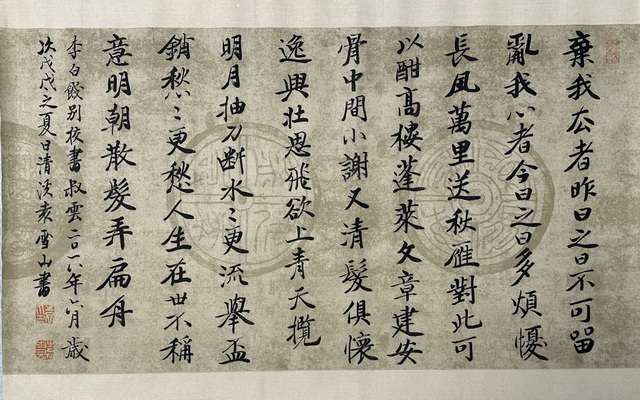 棄我厺者昨日之日不可留
亂我心者今日之日多煩懮
長風萬里送秋雁對此可
以酣高樓蓬萊文章建安
骨中間小謝又清髮俱懷
逸興壯思飛欲上青天攬
明月抽刀斷水〻更流舉盃
銷愁〻更愁人生在世不稱
意明朝散髮弄扁舟
李白餞別校書叔雲二〇一八年六月歲
次戊戌之夏日清溪袁雪山書